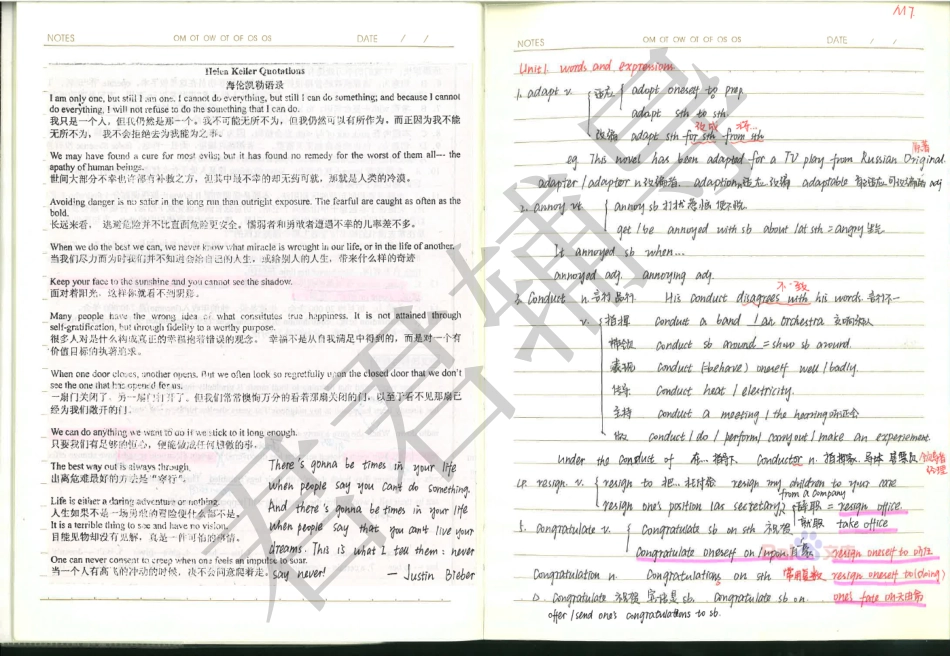 NOTES OM OT OW OT OF OS OS DATE / /
Helen Keller Quotations
海伦凯勒语录
I am only one, but still I am one. I cannot do everything, but still I can do something; and because I cannot
do everything, I will not refuse to do the something that I can do.
我只是一个人，但我仍然是那一个。我不可能无所不为，但我仍然可以有所作为，而正因为我不能
无所不为， 我不会拒绝去为我能为之事。
We may have found a cure for most evils; but it has found no remedy for the worst of them all--- the
apathy of human beings.
世间大部分不幸也许都有补救之方，但其中最不幸的却无药可就，那就是人类的冷漠。
Avoiding danger is no safer in the long run than outright exposure. The fearful are caught as often as the
bold.
长远来看， 逃避危险并不比直面危险更安全。懦弱者和勇敢者遭遇不幸的几率差不多。
When we do the best we can, we never know what miracle is wrought in our life, or in the life of another.
当我们尽力而为时我们并不知道会给自己的人生，或给别人的人生，带来什么样的奇迹
Keep your face to the sunshine and you cannot see the shadow.
面对着阳光，这样你就看不到阴影。
Many people have the wrong idea of what constitutes true happiness. It is not attained through
self-gratification, but through fidelity to a worthy purpose.
很多人对是什么构成真正的幸福抱着错误的观念。 幸福不是从自我满足中得到的，而是对一个有
价值目标的执著追求。
When one door closes, another opens. But we often look so regretfully upon the closed door that we don't
see the one that has opened for us.
一扇门关闭了，另一扇门打开了。但我们常常懊悔万分的看着那扇关闭的门，以至于看不见那扇已
经为我们敞开的门。
We can do anything we want to do if we stick to it long enough.
只要我们有足够的恒心，便能做成任何想做的事。
The best way out is always through.
出离危难最好的方法是“穿行”。
Life is either a daring adventure or nothing.
人生如果不是一场勇敢的冒险便什么都不是。
It is a terrible thing to see and have no vision.
目能见物却没有见解，真是一件可怕的事情。
One can never consent to creep when one feels an impulse to soar.
当一个人有高飞的冲动的时候，决不会同意爬着走。
There's gonna be times in your life
when people say you can't do something.
And there's gonna be times in your life
when people say that you can't live your
dreams. This is what I tell them: never
say never!
— Justin Bieber
M7
NOTES OM OT OW OT OF OS OS DATE / /
Unit1. words and expression
1. adapt v. 适应 adapt oneself to prep.
adapt sth to sth
改成 将…
改编 adapt sth for sth from sth
原著
eg This novel has been adapted for a TV play from Russian Original.
adapter / adaptor n 改编者. adaption n 适应 改编 adaptable 有适应 可改编的 adj
2. annoy vt. annoy sb 打扰
get / be annoyed with sb about / at sth = angry 生气
It annoyed sb when...
annoyed adj. annoying adj.
不一致
3. Conduct n. 言行 品行. His conduct disagrees with his words 言行不一
v. 指挥 conduct a band / an orchestra 交响乐队
conduct sb around = show sb around.
表现 conduct (=behave) oneself well / badly.
传导 conduct heat / electricity.
主持 conduct a meeting / the hearning 听证会
做 conduct / do / perform / carry out / make an experiement
under the conduct of 在…指挥下 Conductor n. 指挥家. 导体
4. resign. v. resign to 把…托付给 resign my children to your care
from a company
resign one's position (as secretary) 辞职 = resign office.
就职 take office
5. Congratulate v. Congratulate sb on sth 祝贺
Congratulate oneself on / upon resign oneself to
Congratulation n. Congratulations on sth 常用复数 resign oneself to (doing)
① Congratulate 祝贺 宾语是 sb. Congratulate sb on. one's fate 听天由命
offer / send one's congratulations to sb.
君君辅导